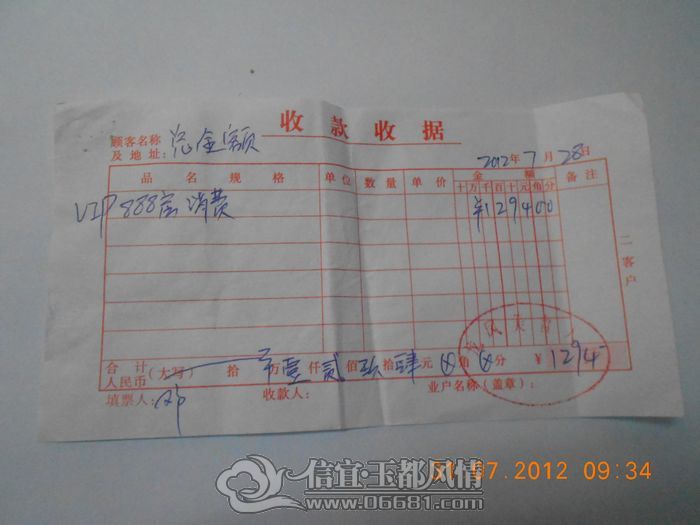 收款收据
顾客名称
及地址: 总金额
2012年7月28日
品名规格 单位 数量 单价 金额 备注
十万千百十元角分
VIP 888房消费 ¥129400
二客户
合计 人民币(大写) 拾 万壹仟贰佰玖拾肆元 角 分 ¥1294
填票人: 收款人: 业户名称(盖章):
07.2012 09:34
信宜·玉都风情
www.06681.com